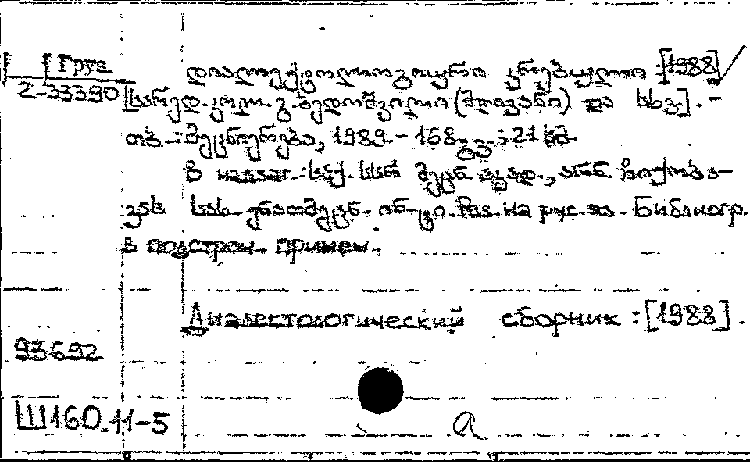 Груз
2-33390
დიალექტოლოგიური კრებული : [1988]
[სარედ. კოლ. გ. ბედოშვილი (მდივანი) და სხვ.]. –
თბ. : მეცნიერება, 1989. – 168 გვ. ; 21 სმ
В надзаг. : საქ. სსრ მეცნ. აკად., არნ. ჩიქობა-
ვას სახ. ენათმეცნ. ინ-ტი. Рез. на рус. яз. Библиогр.
в подстроч. примеч.
Диалектологический сборник : [1988].
93692
Ш160.11-5
а